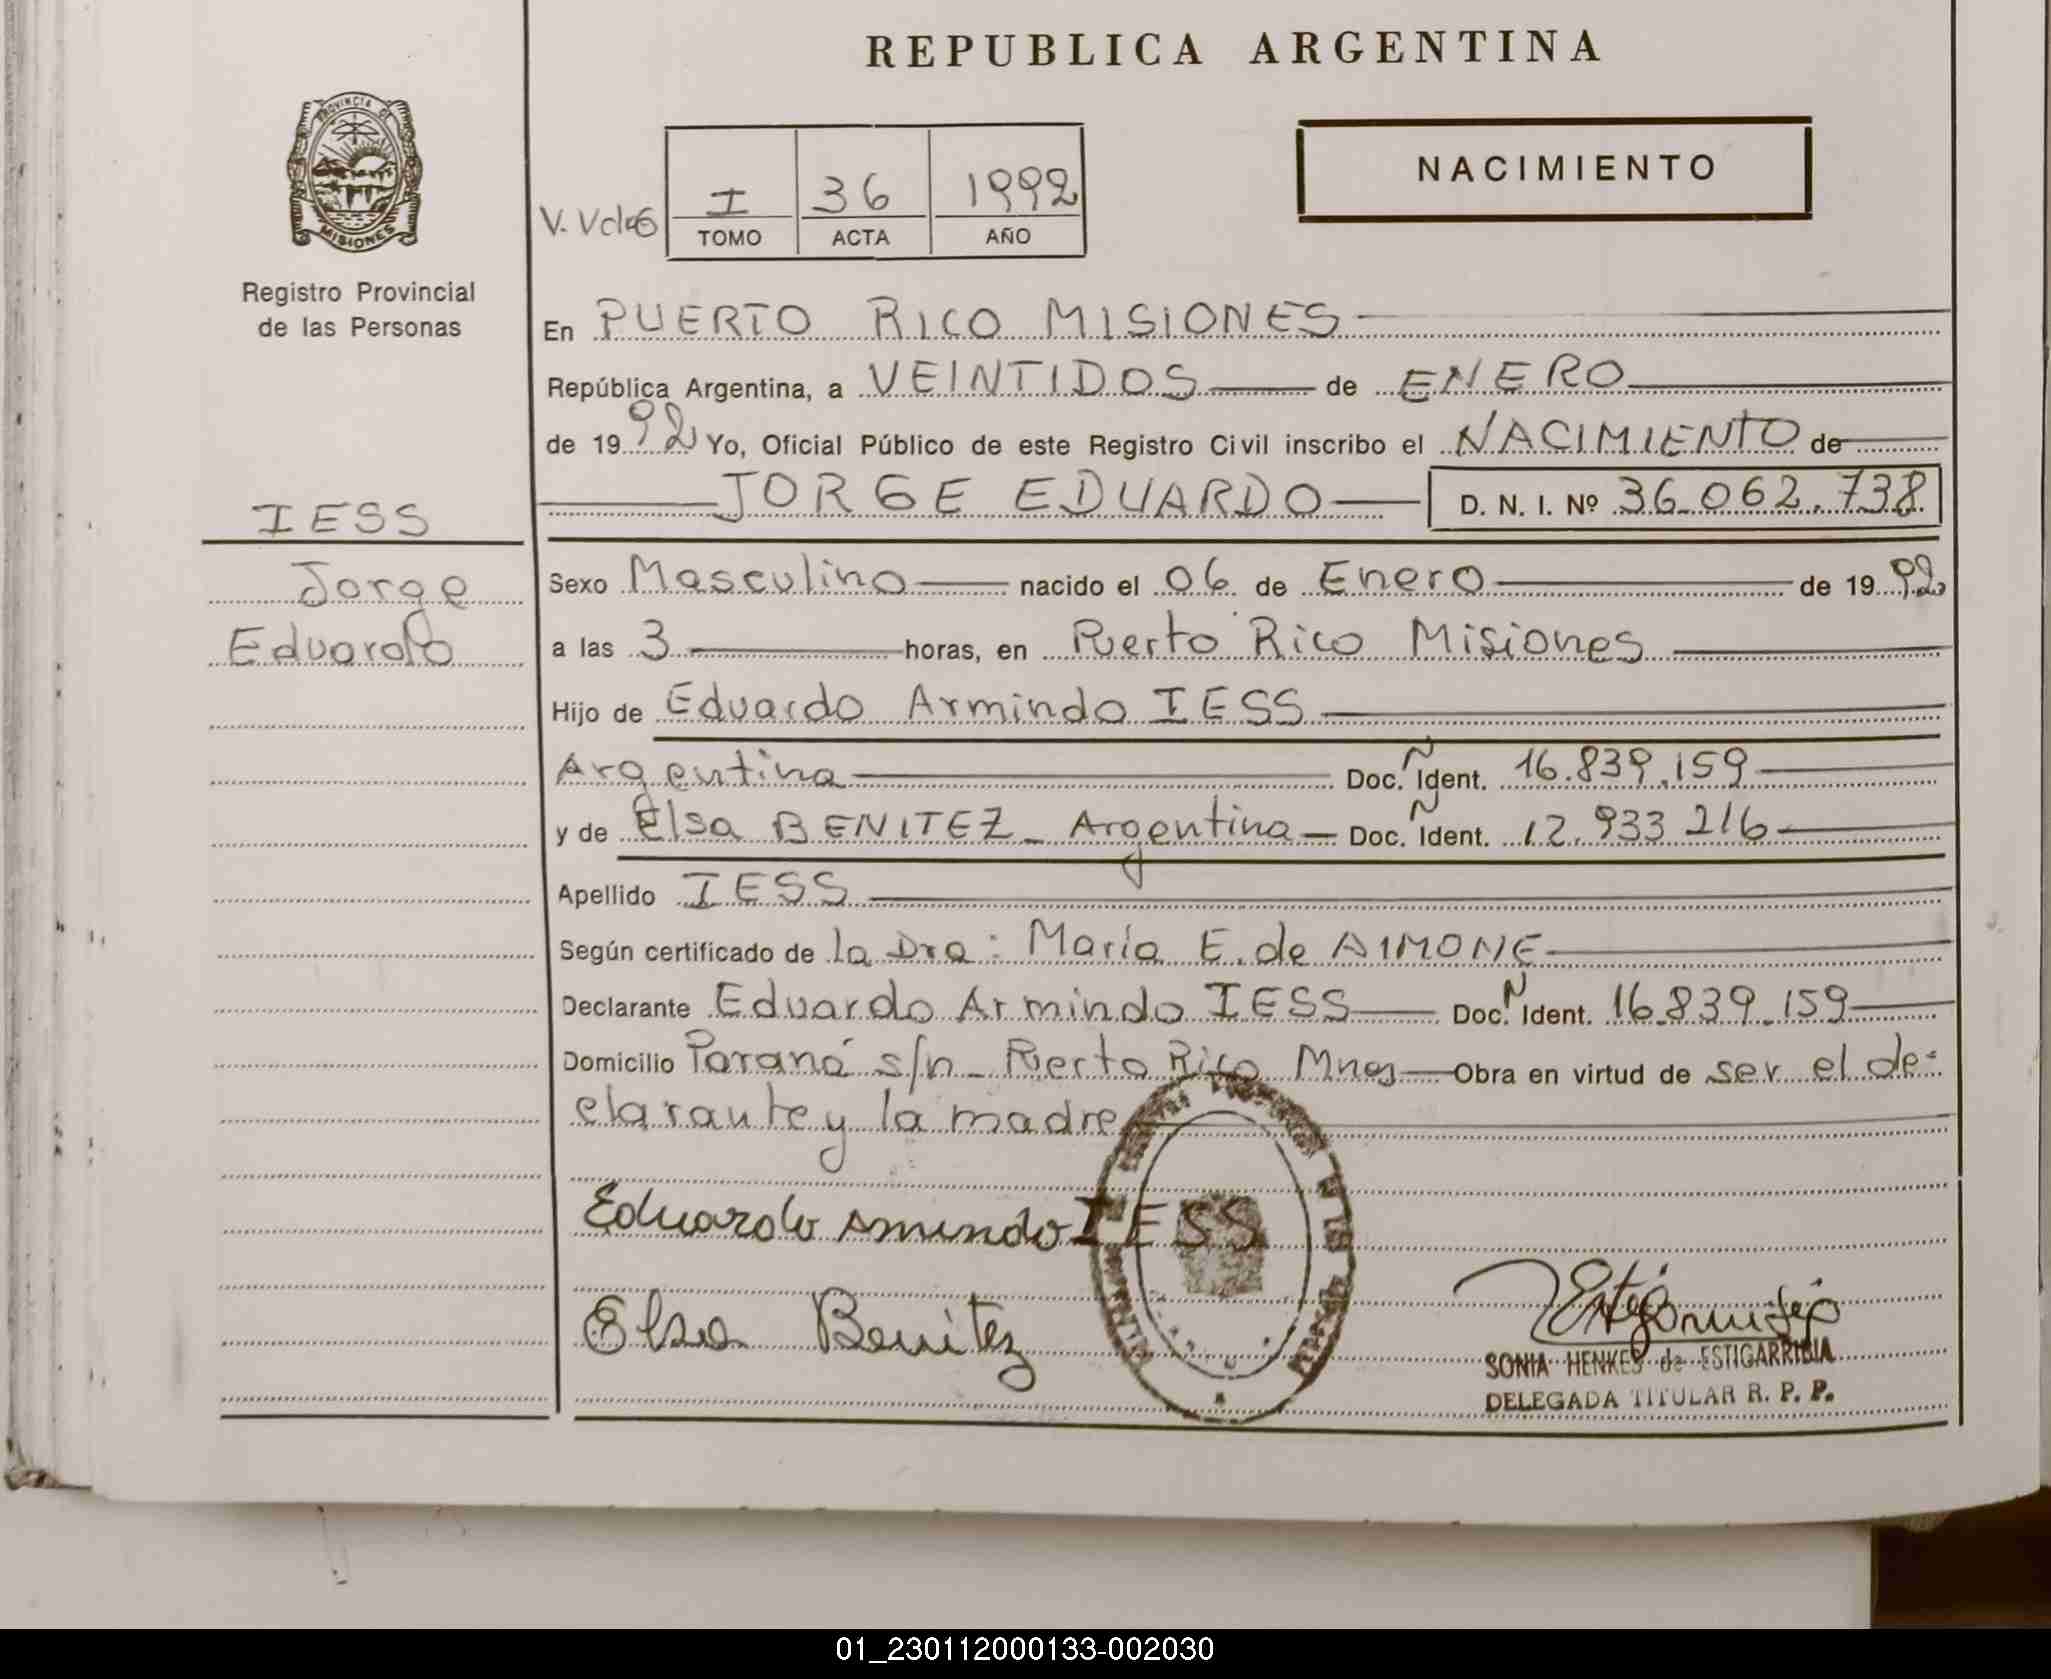 REPUBLICA ARGENTINA
PROVINCIA DE MISIONES
NACIMIENTO
I 36 1992
TOMO ACTA AÑO
Registro Provincial
de las Personas
En PUERTO RICO MISIONES
República Argentina, a VEINTIDOS de ENERO
de 1992 Yo, Oficial Público de este Registro Civil inscribo el NACIMIENTO de
JORGE EDUARDO D. N. I. Nº 36.062.738
IESS
Jorge
Eduardo
Sexo Masculino nacido el 06 de Enero de 1992
a las 3 horas, en Puerto Rico Misiones
Hijo de Eduardo Armindo IESS
Argentina Doc. Ident. 16.839.159
y de Elsa BENITEZ - Argentina Doc. Ident. 12.933 216
Apellido IESS
Según certificado de la Dra: María E. de AIMONE
Declarante Eduardo Armindo IESS Doc. Ident. 16.839.159
Domicilio Paraná s/n - Puerto Rico Mnes Obra en virtud de ser el de-
clarante y la madre
Eduardo Armindo IESS
Elsa Benitez
SONIA HENKES de ESTIGARRIBIA
DELEGADA TITULAR R. P. P.
01_230112000133-002030